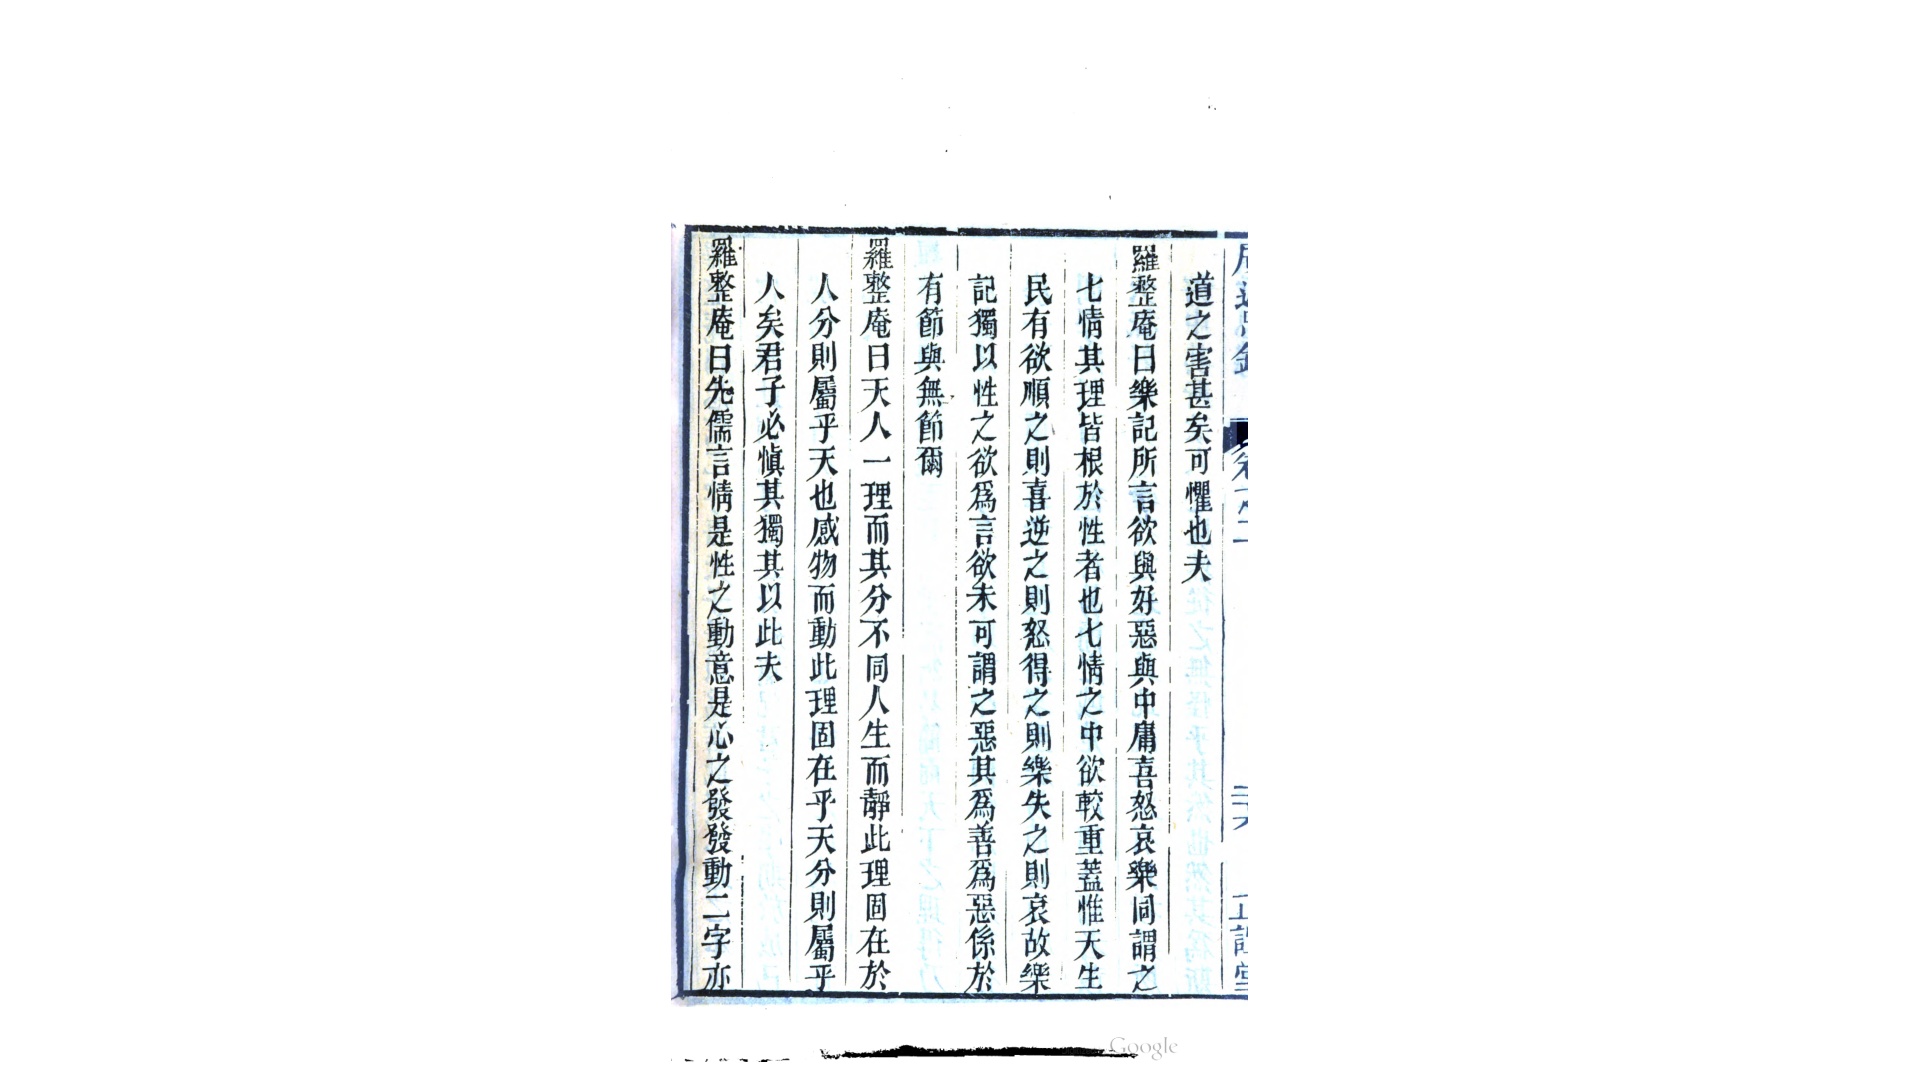 道之害甚矣可懼也夫
羅整庵曰樂記所言欲與好惡與中庸喜怒哀樂同謂之
七情其理皆根於性者也七情之中欲較重蓋惟天生
民有欲順之則喜逆之則怒得之則樂失之則哀故樂
記獨以性之欲爲言欲未可謂之惡其爲善爲惡係於
有節與無節爾
羅整庵曰天人一理而其分不同人生而靜此理固在於
人分則屬乎天也感物而動此理固在乎天分則屬乎
人矣君子必愼其獨其以此夫
羅整庵曰先儒言情是性之動意是心之發發動二字亦
Google